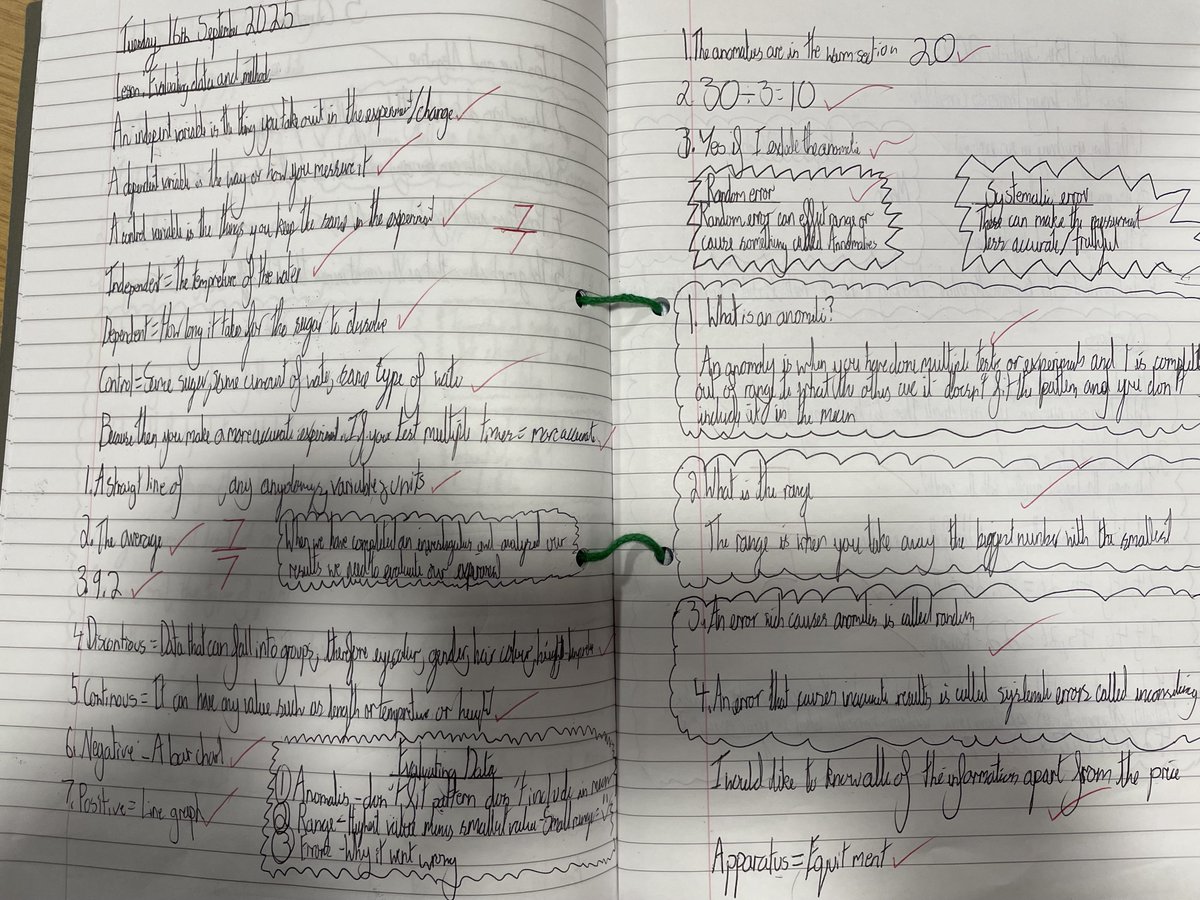 Tuesday 16th September 2025
Lesson: Evaluating data and method
An indepent variable is the thing you take out in the experiment/change
A dependent variable is the way or how you messure it
A control variable is the things you keep the same in the experiment
7
Independent = The tempreture of the water
Dependent = How long it takes for the sugar to dissolve
Control = Same sugar, same amount of water, same type of water
Because then you make a more accurate experiment. If you test multiple times = more accurate
1. A straigt line of any variables units
2. The average
7
7
3. 9.2
When we have completed an investigation and analysed our
results we need to evaluate our experiment
4. = Data that can fall into groups, therefore eyecolour, gender, hair colour,
5. Continous = It can have any value such as length or tempreture or height
6. Negative - A bar chart
7. Positive = Line graph
Evaluating Data
1 Anomalis - don't fit pattern don't include in mean
2 Range - Highest value minus smallest value - Small range =
3 Errors - Why it went wrong
1. The anomalies are in the warm section 20
2. 30÷3=10
3. Yes if I exlude the anomolie
Random error
Random error can effect range or
cause something called
Systematic error
These can make the messurment
less accurate/truthful
1. What is an anomoli?
An anomoly is when you have done multiple tests or experiments and 1 is complet
out of range to what the others are it doesn't fit the pattern and you don't
include it in the mean
2 What is the range
The range is when you take away the biggest number with the smallest
3. An error wich causes anomolies is called random
4. An error that causes results is called errors called
I would like to know all of the information apart from the price
Apparatus = Equitment